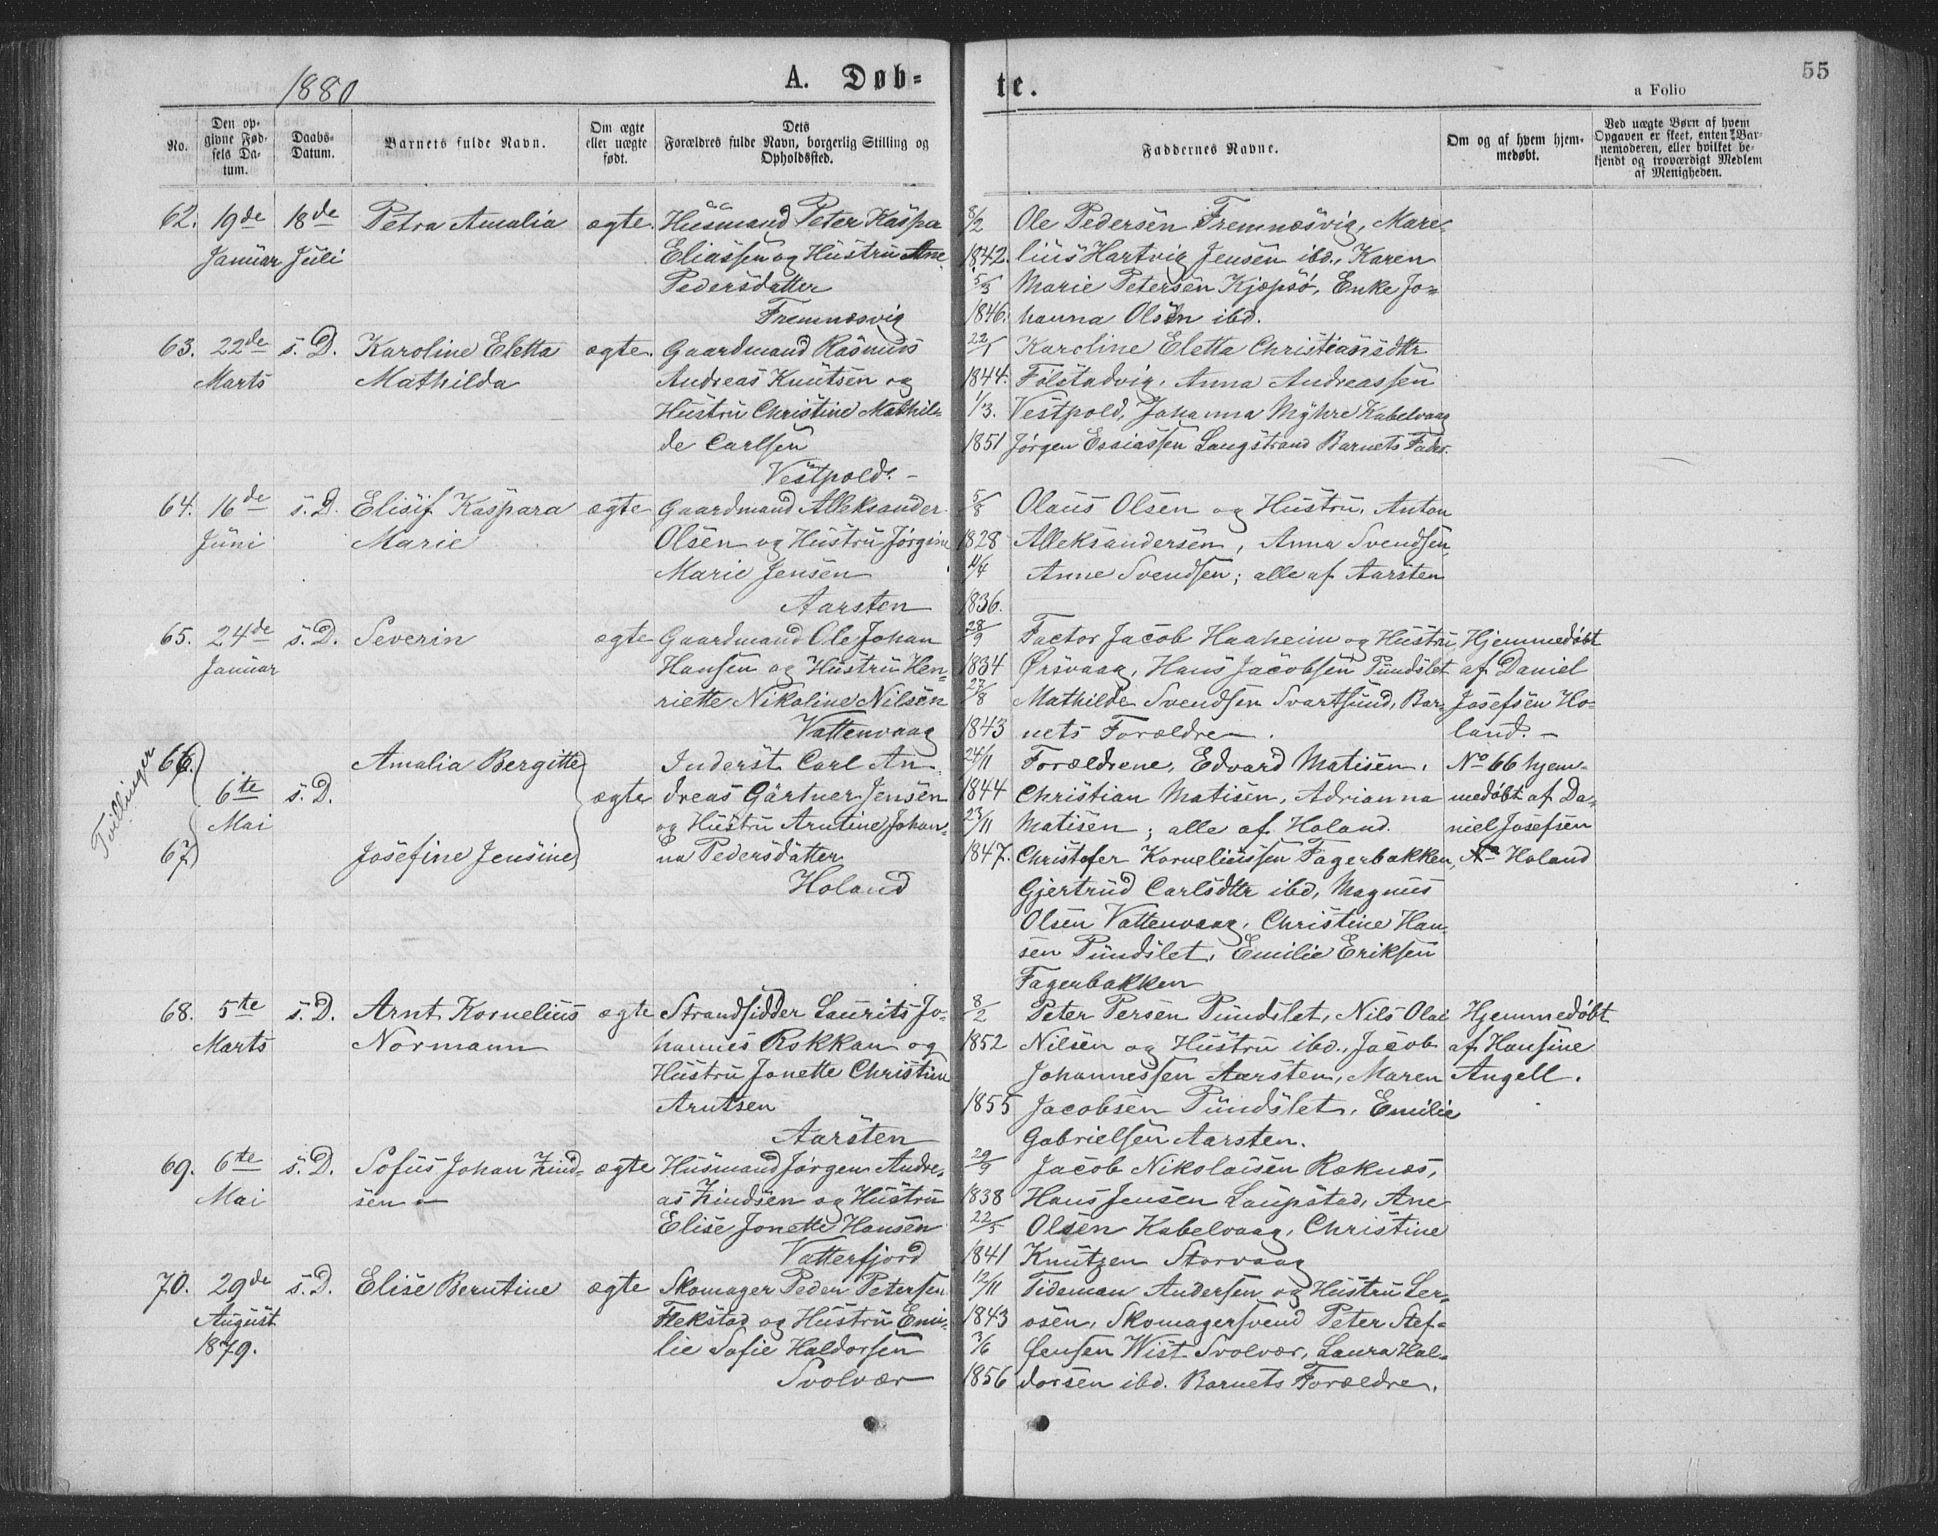 1880
A. Døb-
te.
a Folio
55
No.
Den op-
givne Fød-
sels Da-
tum.
Daabs-
Datum.
Barnets fulde Navn.
Om ægte
eller uægte
født.
Dets
Forældres fulde Navn, borgerlig Stilling og
Opholdssted.
Faddernes Navne.
Om og af hvem hjem-
medøbt.
Ved uægte Børn af hvem
Opgaven er skeet, enten Bar-
nemoderen, eller hvilket be-
kjendt og troværdigt Medlem
af Menigheden.
62. 19de 18de Petra Amalia ægte. Husmand Peter Kaspa 8/2 Ole Pedersen Fremnæsvig, Mare-
Januar Juli Eliassen og Hustru Ane 1842. lius Hartvig Jensen ibd., Karen
Pedersdatter 5/5 Marie Petersen Kjæpsø, Enke Jo-
Fremnæsvig 1846. hanna Olsen ibd.
63. 22de s. D. Karoline Eletta ægte. Gaardmand Rasmus 22/1 Karoline Eletta Christiansdttr
Marts Mathilda Andreas Knutsen og 1844. Følstadvig, Anna Andreassen
Hustru Christine Mathil- 1/3. Vestpold, Johanna Myhre Kabelvaag
de Carlsen 1851 Jørgen Essiassen Langstrand Barnets Fader.
Vestpold. -
64. 16de s. D. Elisif Kaspara ægte Gaardmand Alleksander 5/8 Olaus Olsen og Hustru, Anton
Juni Marie Olsen og Hustru Jørgine 1828 Alleksandersen, Anna Svendsen
Marie Jensen 11/4 Anne Svendsen; alle af Aarsten
Aarsten 1836.
65. 24de s. D. Severin ægte Gaardmand Ole Johan 28/9 Factor Jacob Haaheim og Hustru Hjemmedøbt
Januar Hansen og Hustru Hen- 1834 Ørsvaag, Hans Jacobsen Pundslet af Daniel
riette Nikoline Nilsen 27/8 Mathilde Svendsen Svartsund, Bar- Josefsen Ho-
Vattenvaag 1843 nets Forældre. land. -
Tvillinger
66. Amalia Bergitte Inderst Carl An- 24/11 Forældrene, Edvard Matisen, No 66 hjem-
6te s. D. ægte dreas Gärtner Jensen 1844 Christian Matisen, Adrianna medøbt af Da-
Mai og Hustru Arntine Johan- 23/11 Matisen; alle af Holand. niel Josefsen
67. Josefine Jensine na Pedersdatter 1847. Christofer Korneliussen Fagerbakken, Holand
Holand Gjertrud Carlsdttr ibd, Magnus
Olsen Vattenvaag, Christine Han-
sen Pundslet, Emilie Eriksen
Fagerbakken
68. 5te s. D. Arnt Kornelius ægte Strandsidder Laurits Jo- 8/2 Peter Persen Pundslet, Nils Olai Hjemmedøbt
Marts Normann hannes Rokkan og 1852 Nilsen og Hustru ibd., Jacob af Hansine
Hustru Jonette Christine Johannessen Aarsten, Maren Angell.
Arntsen 1855 Jacobsen Pundslet, Emilie
Aarsten Gabrielsen Aarsten.
69. 6te s. D. Sofus Johan Zind- ægte Husmand Jørgen Andre- 29/9 Jacob Nikolaisen Reknes,
Mai sen as Zindsen og Hustru 1838 Hans Jensen Laupstad, Ane
Elise Jonette Hansen 22/5 Olsen Kabelvaag, Christine
Vatterfjord 1841 Knutzen Storvaag
70. 29de s. D. Elise Berntine ægte Skomager Peder Petersen 12/11 Tideman Andersen og Hustru Ler-
August Flekstad og Hustru Emi- 1843 osen, Skomagersvend Peter Stef-
1879. lie Sofie Haldorsen 3/6 fensen Wist Svolvær, Laura Hal-
Svolvær 1856 dorsen ibd. Barnets Forældre.